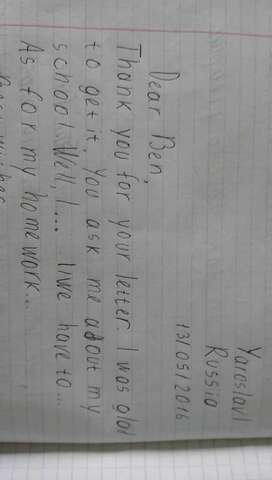 Yaroslavl
Russia
13/05/2016
Dear Ben,
Thank you for your letter. I was glad
to get it. You ask me about my
school. Well, I... live have to...
As for my homework...
Best wishes